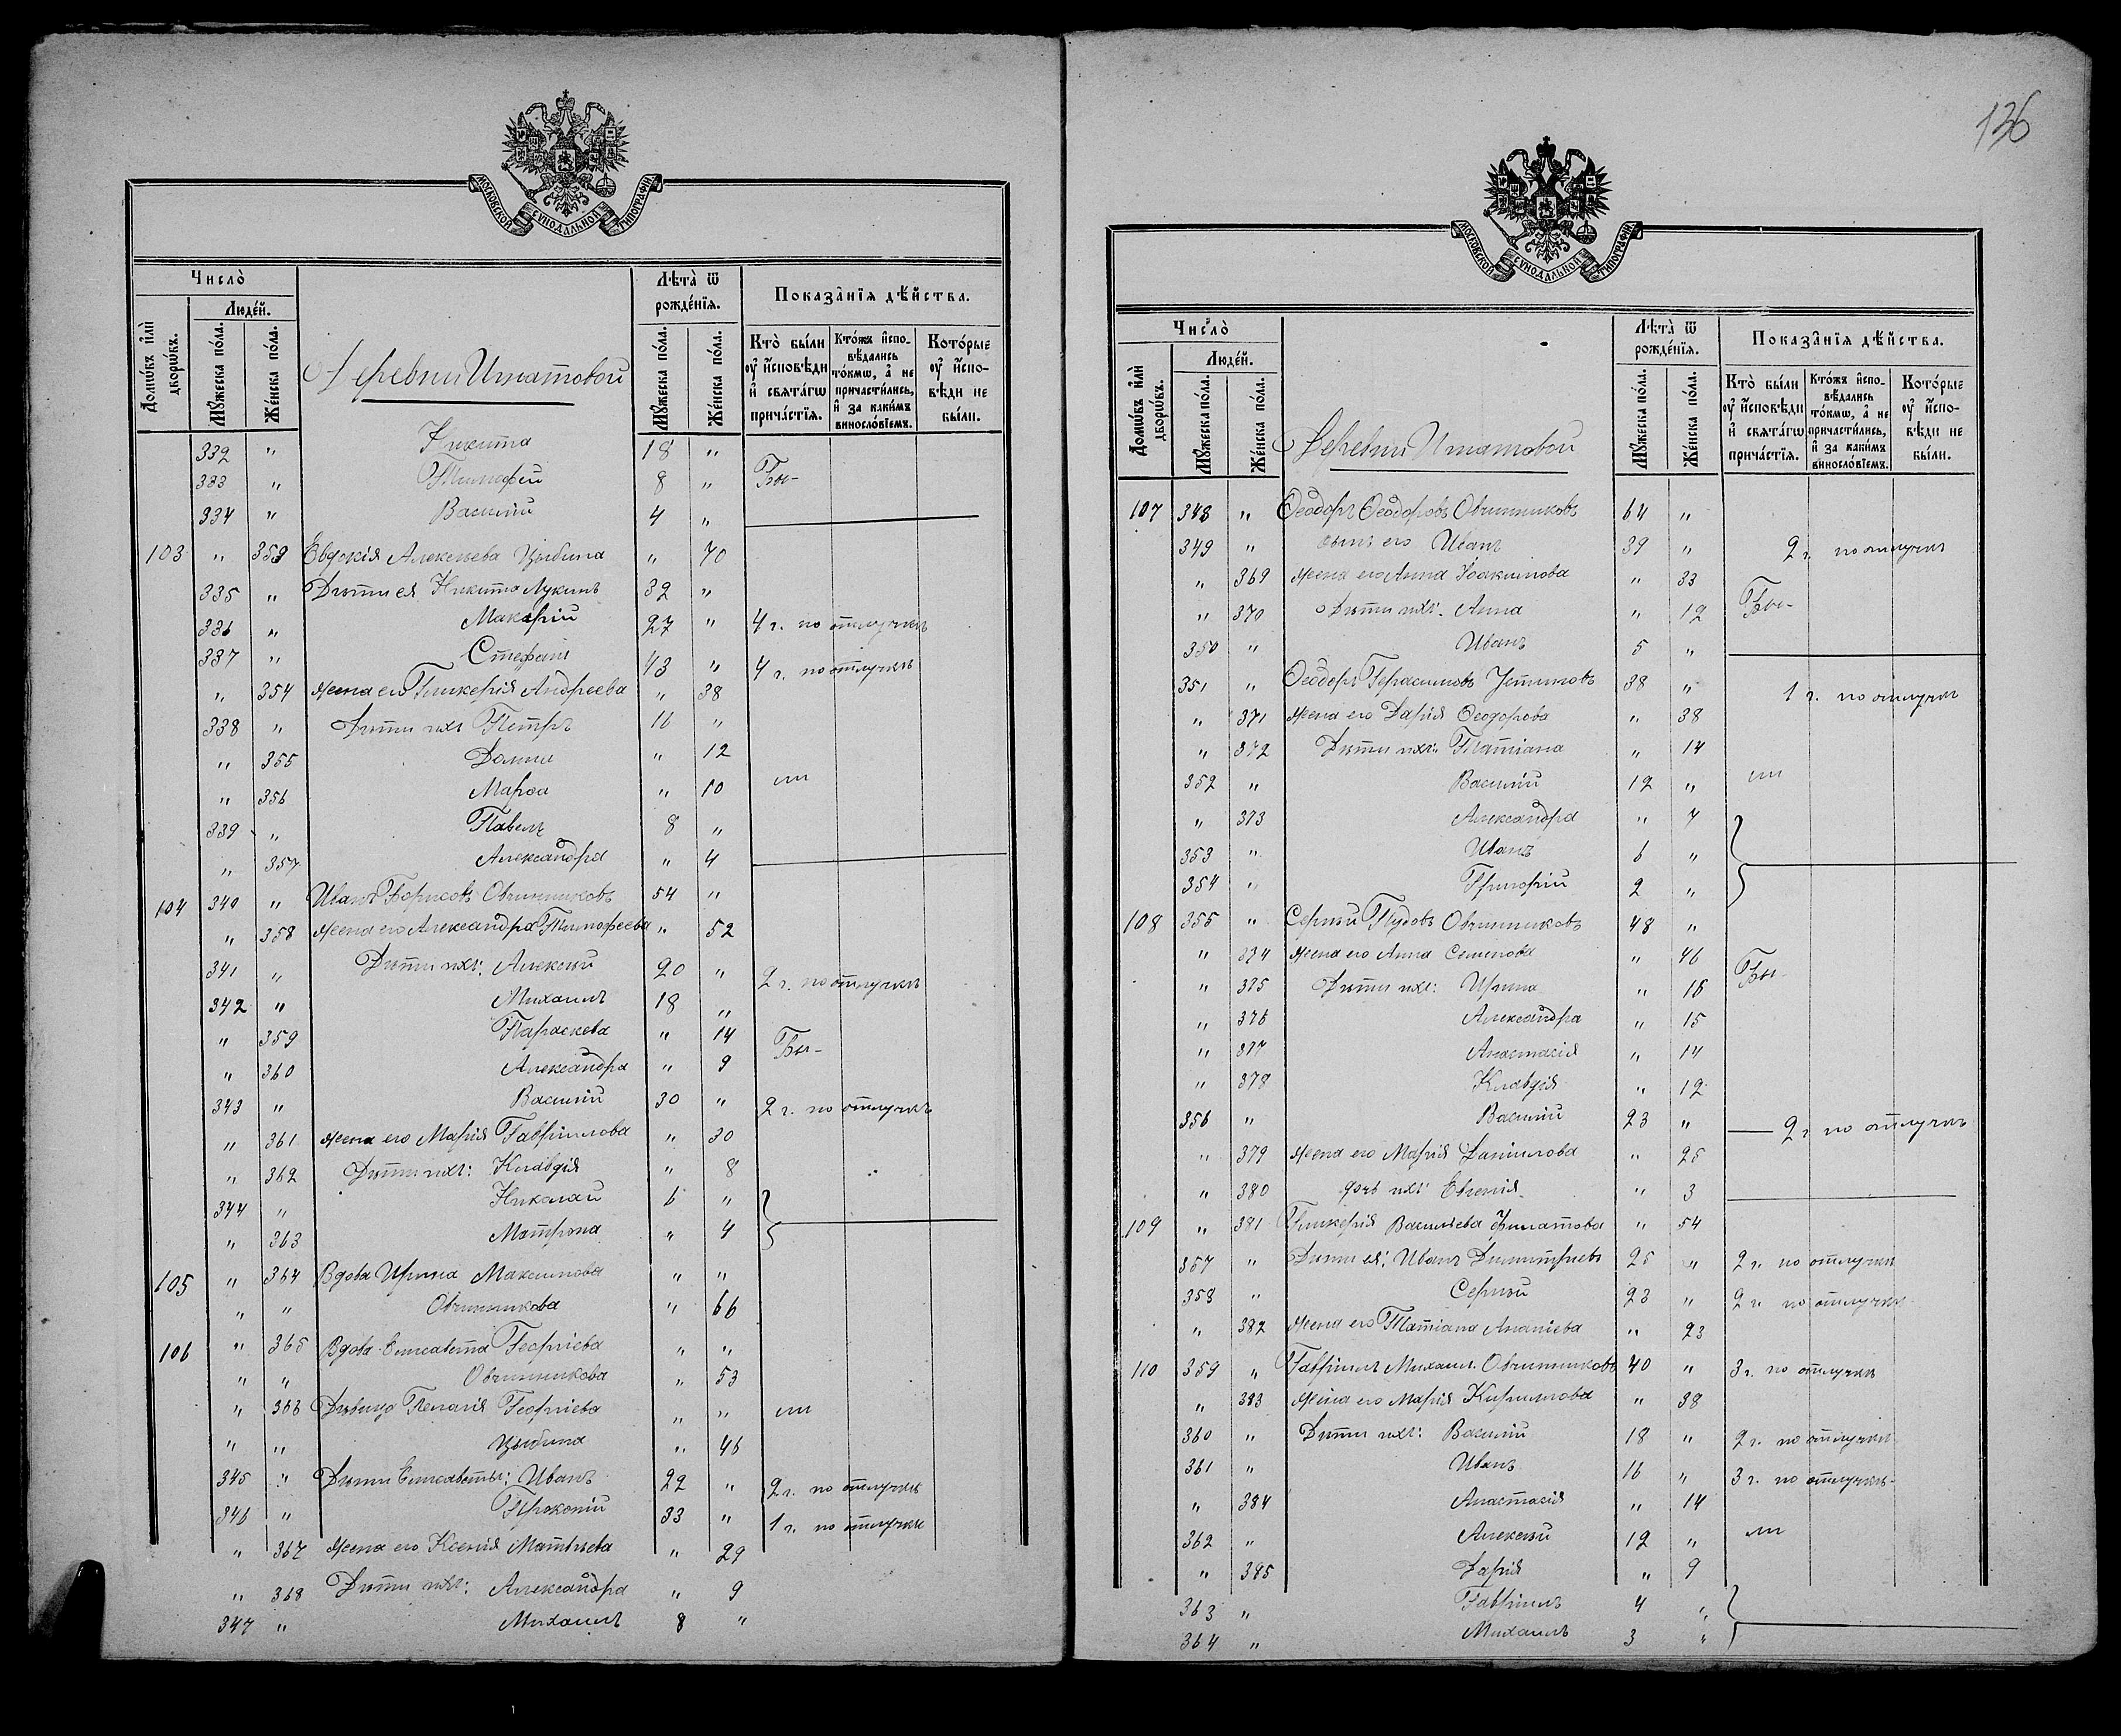 МОСКОВСКОЙ СѴНОДАЛЬНОЙ ТИПОГРАФІИ.
Число̀
Люде́й.
Домѡ́въ и҆лѝ дворѡ́въ.
Мꙋ́жеска по́ла.
Же́нска по́ла.
Деревни Итатовой
Лѣта̀ ѿ рожде́нїѧ.
Мꙋ́жеска по́ла.
Же́нска по́ла.
Показа̑нїѧ дѣ́йства.
Кто̀ бы́ли ᲂу҆ и҆́сповѣди и҆ свѧта́гѡ прича́стїѧ.
Кто́жъ и҆спо- вѣ́дались то́кмѡ, а҆ не причасти́лись, и҆ за каки́мъ виносло́вїемъ.
Кото́рые ᲂу҆ и҆́спо- вѣди не бы́ли.
332 " Никита 18 "
333 " Тимофей 8 " Бы-
334 " Василій 4 "
103 " 353 Евдокія Алексѣева Цыбина " 70
335 " Дѣти ея Никита Лукинъ 32 "
336 " Макарій 27 " 4 г. по отлучкѣ
337 " Стефанъ 43 " 4 г. по отлучкѣ
" 354 Жена его Гликерія Андреева " 38
338 " Дѣти ихъ Петръ 16 "
" 355 Домна " 12
" 356 Марѳа " 10 ли
339 " Павелъ 8 "
" 357 Александра " 4
104 340 " Иванъ Борисовъ Овчинниковъ 54 "
" 358 Жена его Александра Тимофеева " 52
341 " Дѣти ихъ: Алексѣй 20 " 2 г. по отлучкѣ
342 " Михаилъ 18 "
" 359 Параскева " 14 Бы-
" 360 Александра " 9
343 " Василій 30 " 2 г. по отлучкѣ
" 361 Жена его Марія Гавріилова " 30
" 362 Дѣти ихъ: Клавдія " 8
344 " Николай 6 "
" 363 Матрона " 4
105 " 364 Вдова Ирина Максимова " "
" " Овчинникова " 66
106 " 365 Вдова Елисавета Георгіева " "
" " Овчинникова " 53
" 366 Дѣвица Пелагія Георгіева " " ли
" " Цыбина " 46
345 " Дѣти Елисаветы: Иванъ 22 " 2 г. по отлучкѣ
346 " Прокопій 33 " 1 г. по отлучкѣ
" 367 Жена его Ксенія Матвѣева " 29
" 368 Дѣти ихъ: Александра " 9
347 " Михаилъ 8 "
136
МОСКОВСКОЙ СѴНОДАЛЬНОЙ ТИПОГРАФІИ.
Число̀
Люде́й.
Домѡ́въ и҆лѝ дворѡ́въ.
Мꙋ́жеска по́ла.
Же́нска по́ла.
Деревни Итатовой
Лѣта̀ ѿ рожде́нїѧ.
Мꙋ́жеска по́ла.
Же́нска по́ла.
Показа̑нїѧ дѣ́йства.
Кто̀ бы́ли ᲂу҆ и҆́сповѣди и҆ свѧта́гѡ прича́стїѧ.
Кто́жъ и҆спо- вѣ́дались то́кмѡ, а҆ не причасти́лись, и҆ за каки́мъ виносло́вїемъ.
Кото́рые ᲂу҆ и҆́спо- вѣди не бы́ли.
107 348 " Ѳеодоръ Ѳеодоровъ Овчинниковъ 64 "
349 " сынъ его Иванъ 39 " 2 г. по отлучкѣ
" 369 Жена его Анна Іоакимова " 33
" 370 Дѣти ихъ: Анна " 12 Бы-
350 " Иванъ 5 "
351 " Ѳеодоръ Герасимовъ Устиновъ 38 " 1 г. по отлучкѣ
" 371 Жена его Дарія Ѳеодорова " 38
" 372 Дѣти ихъ: Татіана " 14
352 " Василій 12 " ли
" 373 Александра " 7
353 " Иванъ 6 "
354 " Григорій 2 "
108 355 " Сергѣй Тудовъ Овчинниковъ 48 "
" 374 Жена его Анна Семенова " 46
" 375 Дѣти ихъ: Ирина " 18 Бы-
" 376 Александра " 15
" 377 Анастасія " 14
" 378 Клавдія " 12
356 " Василій 23 " 2 г. по отлучкѣ
" 379 Жена его Марія Даніилова " 25
" 380 дочь ихъ Евгенія " 3
109 " 381 Гликерія Васильева Филатова " 54
357 " Дѣти ея: Иванъ Димитріевъ 25 " 2 г. по отлучкѣ
358 " Сергѣй 23 " 2 г. по отлучкѣ
" 382 Жена его Татіана Ананіева " 23
110 359 " Гавріилъ Михаил. Овчинниковъ 40 " 3 г. по отлучкѣ
" 383 Жена его Марія Кириллова " 38
360 " Дѣти ихъ: Василій 18 " 2 г. по отлучкѣ
361 " Иванъ 16 " 3 г. по отлучкѣ
" 384 Анастасія " 14
362 " Алексѣй 12 " ли
" 385 Дарія " 9
363 " Гавріилъ 4 "
364 " Михаилъ 3 "